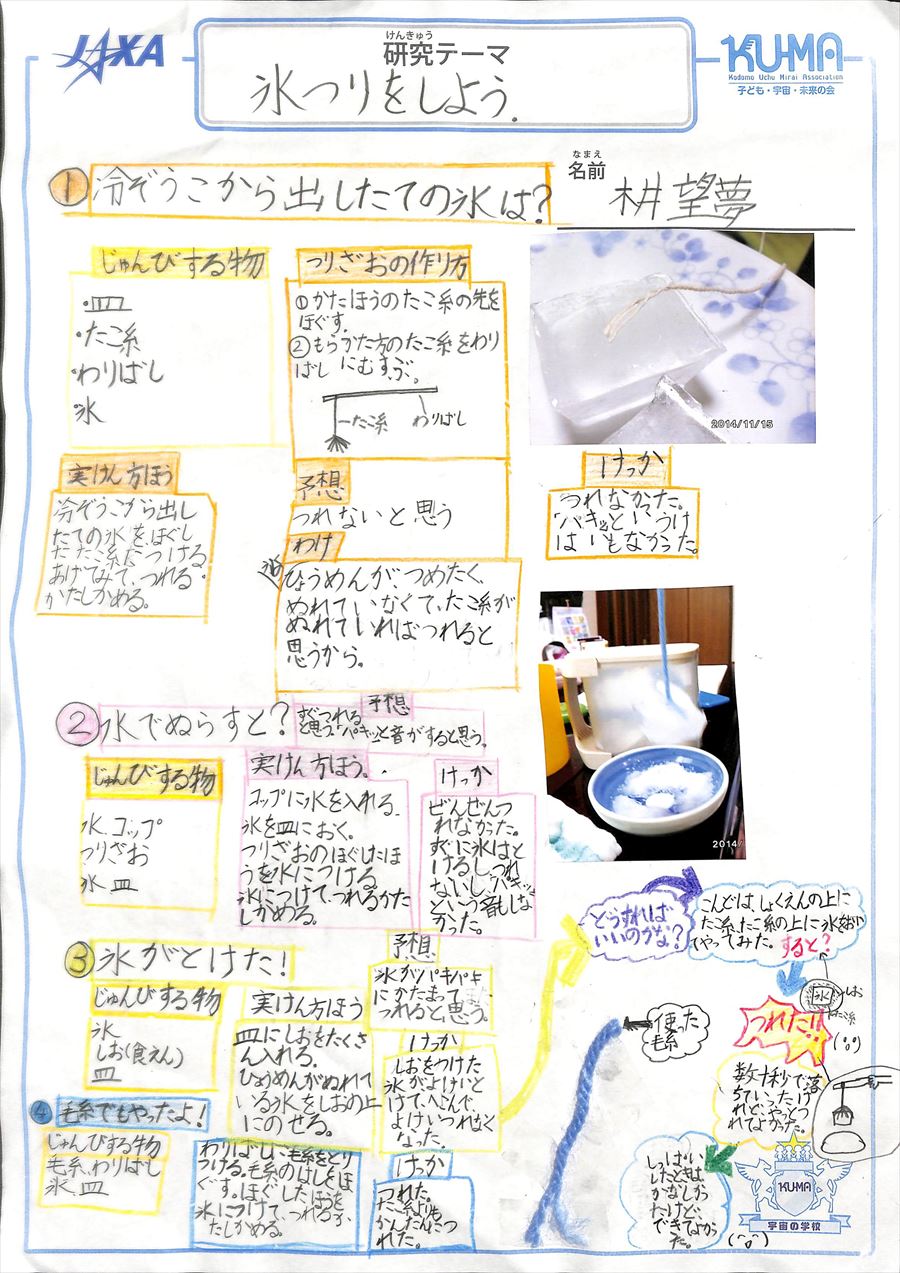 JAXA
けんきゅう
研究テーマ
氷つりをしよう.
KU-MA
Kodomo Uchu Mirai Association
子ども・宇宙・未来の会
なまえ
名前
望夢
① 冷ぞうこから出したての氷は?
じゅんびする物
・皿
・たこ糸
・わりばし
・氷
つりざおの作り方
①かたほうのたこ糸の先を
ほぐす。
②もうかた方のたこ糸をわり
ばしにむすぶ。
たこ糸
わりばし
2014/11/15
実けん方ほう
冷ぞうこから出し
たての氷を、ほぐし
たたこ糸につける
あげてみて、つれる
かたしかめる。
予想
つれないと思う
わけ
氷の
ひょうめんがつめたく、
ぬれていなくて、たこ糸が
ぬれていればつれると
思うから。
けっか
つれなかった。
「パキッ」といううけ
はいもなかった。
② 水でぬらすと?
予想
すぐつれる
と思う。パキッと音がすると思う。
じゅんびする物
水、コップ
つりざお
氷、皿
実けん方ほう。
コップに水を入れる。
氷を皿におく。
つりざおのほぐしたほ
うを水につける。
氷につけて、つれるかた
しかめる。
けっか
ぜんぜんつ
れなかった。
すぐに氷はと
けるし、つれ
ないし、「パキッ」
という音もしな
かった。
2014
③ 氷がとけた!
じゅんびする物
氷
しお(食えん)
皿
実けん方ほう
皿にしおをたくさ
ん入れる。
ひょうめんがぬれて
いる氷をしおの上
にのせる。
予想
氷がパキパキ
にかたまって
つれると思う。
けっか
しおをつけた
氷がよけいと
けて、へこんで、
よけいつれなく
なった。
どうすれば
いいのかな?
こんどは、しょくえんの上に
たこ糸、たこ糸の上に氷をおい
てやってみた。すると?
氷
しお
たこ糸
つれた!!
数十秒で落
ちていったけ
れど、やっとつ
れてよかった。
④ 毛糸でもやったよ!
じゅんびする物
毛糸、わりばし
氷、皿
わりばしに毛糸をとり
つける。毛糸のはしをほ
ぐす。ほぐしたほうを
氷につけて、つれるか、
たしかめる。
けっか
つれた。
たこ糸よりも
かんたんにつ
れた。
使った
毛糸
しっぱい
したときは、
かなしかっ
たけど、
できてよかっ
た。
KUMA
宇宙の学校